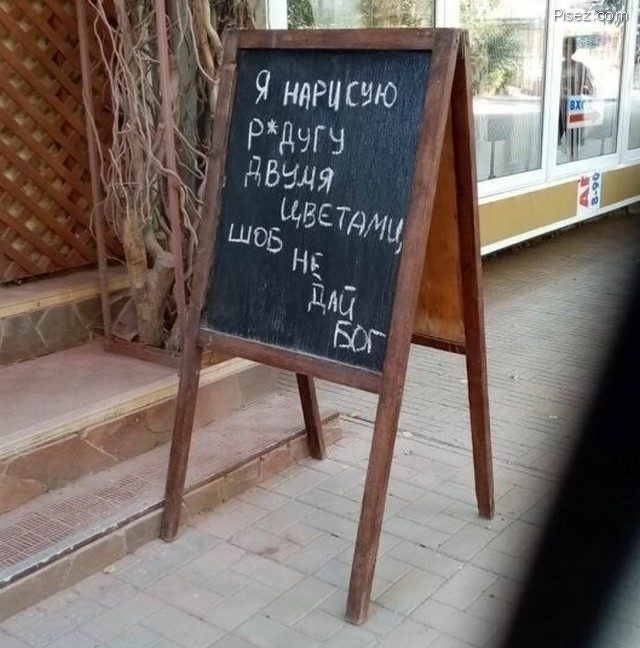 Pisez.com
Я НАРИСУЮ
Р*ДУГУ
ДВУМЯ
ЦВЕТАМИ,
ШОБ НЕ
ДАЙ
БОГ
ВХО